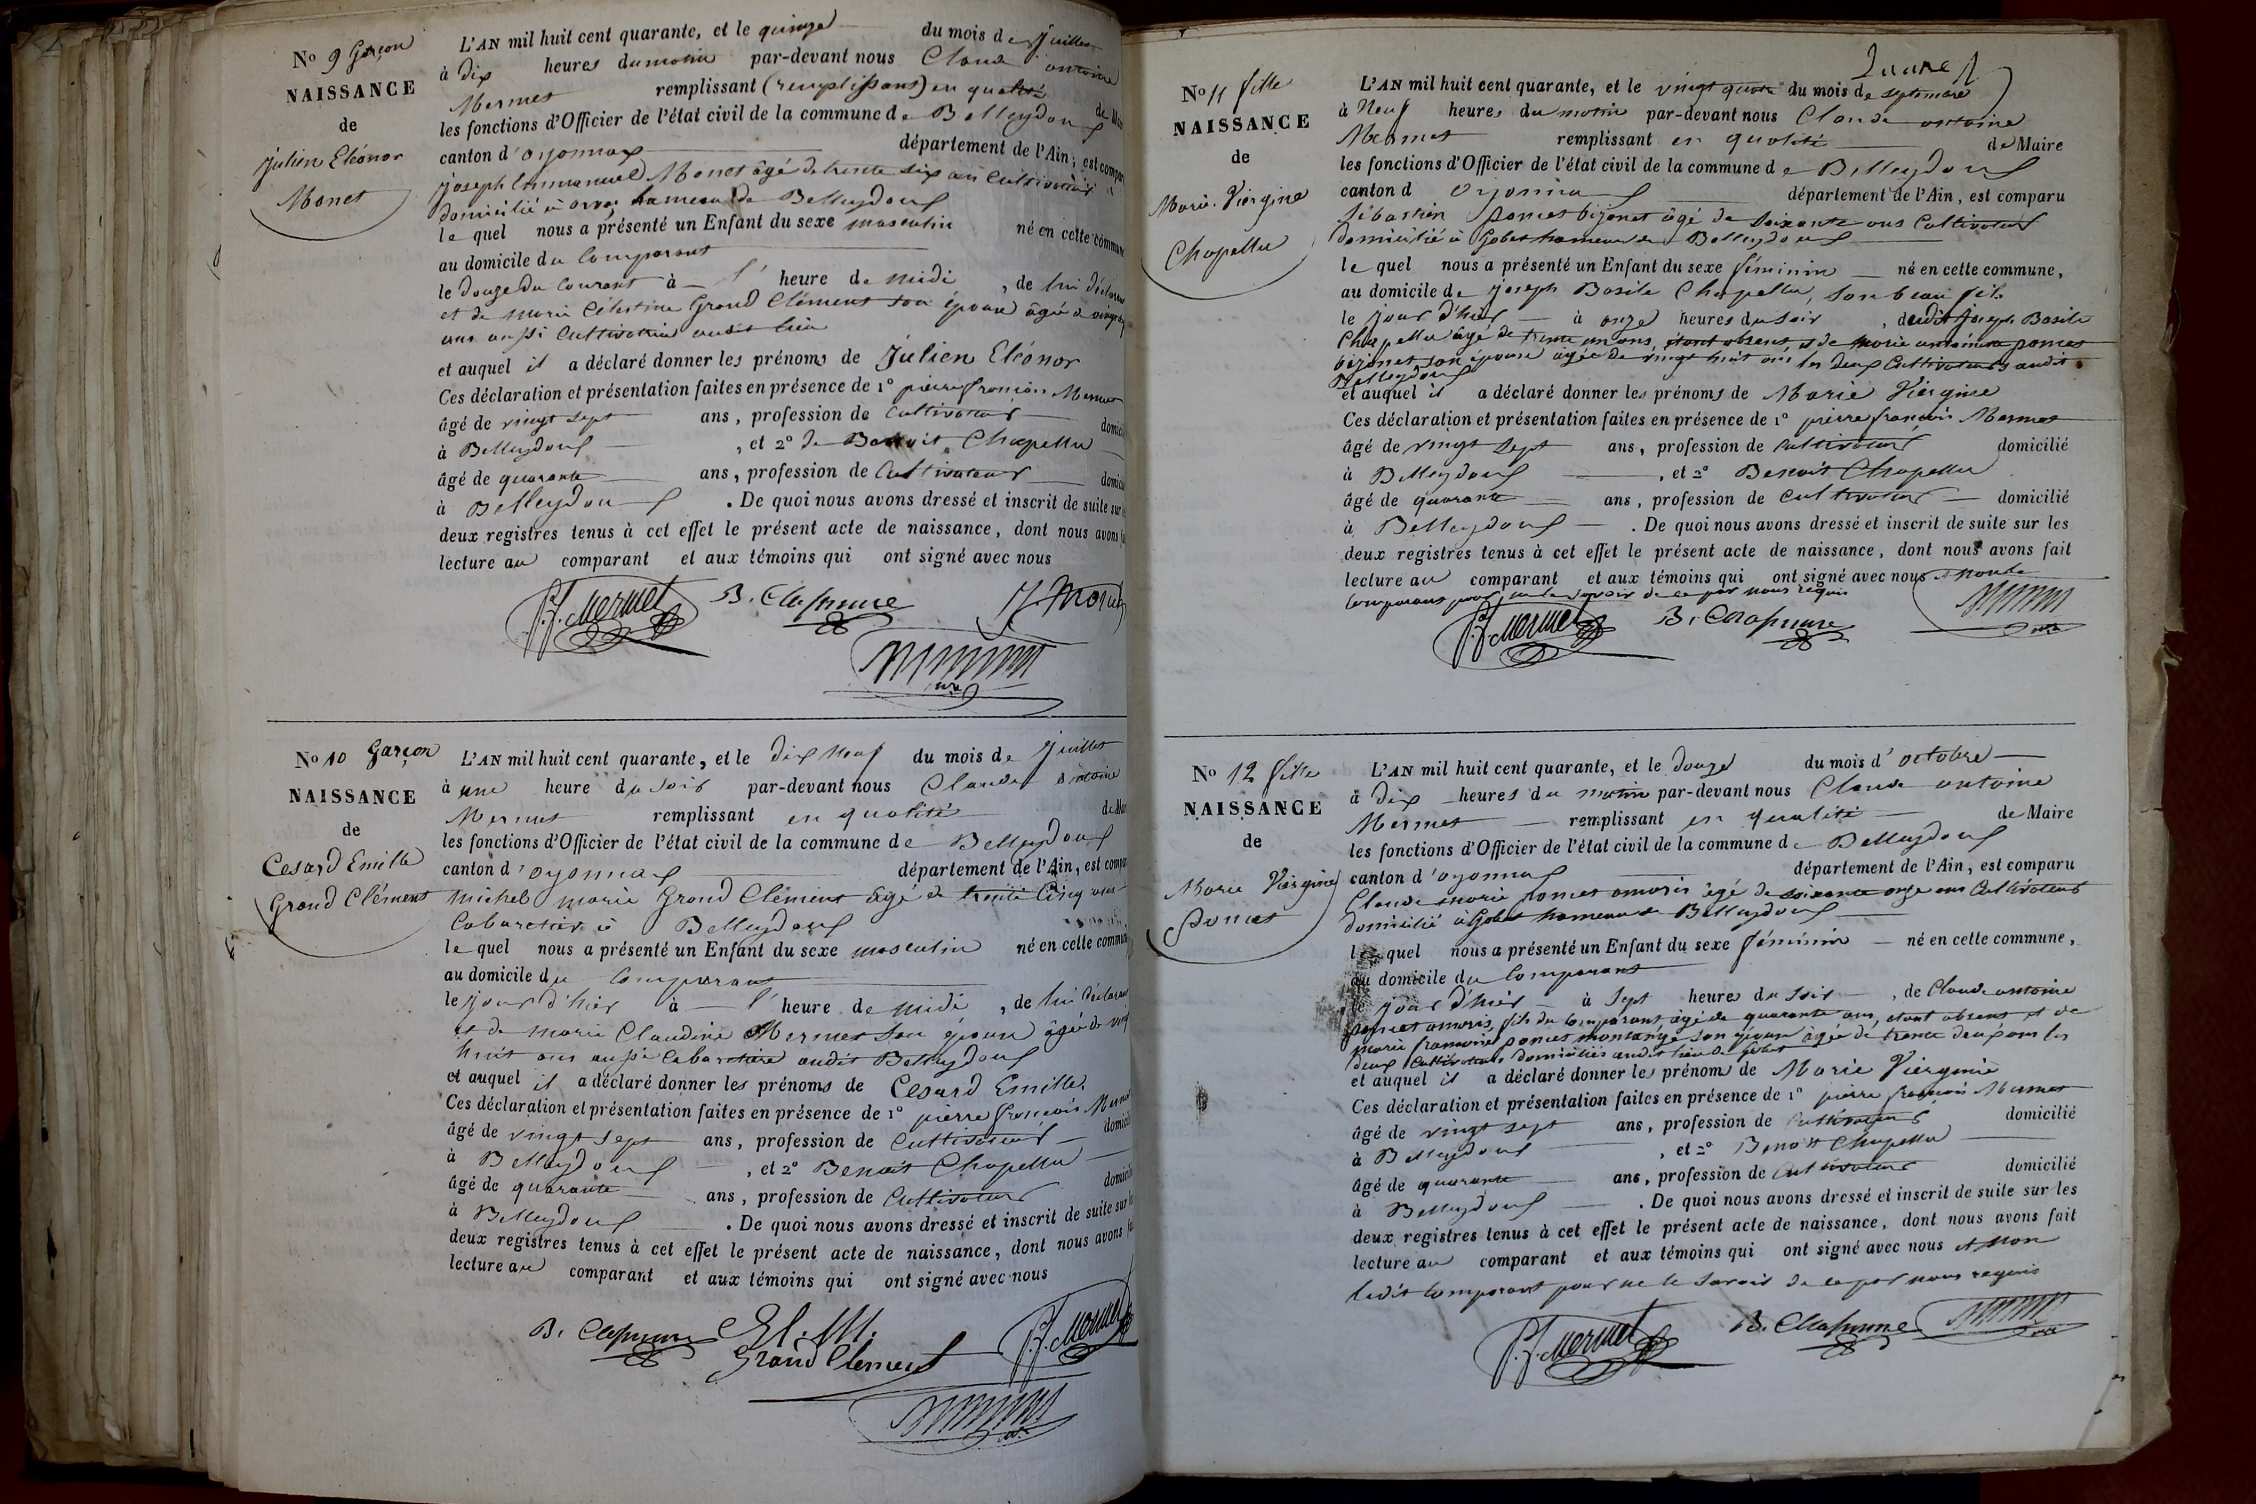 No 9 Garçon
NAISSANCE
de
Julien Eléonor
Monet
L'AN mil huit cent quarante, et le quinze du mois de juillet
à dix heures du matin par-devant nous Claude antoine
Mermet remplissant (remplissant) en qualité de
les fonctions d'Officier de l'état civil de la commune de Belleydoux
canton d'oyonnax département de l'Ain, est
joseph Emmanuel Monet âgé de trente six ans Cultivateur
domicilié à hameau de Belleydoux
le quel nous a présenté un Enfant du sexe masculin né en cette commune
au domicile du Comparant
le douze du Courant à l'heure de midi, de lui
et de marie Célestine Grand Clément son épouse âgée de
ans aussi Cultivatrice audit lieu
et auquel il a déclaré donner les prénoms de Julien Eléonor
Ces déclaration et présentation faites en présence de 1° pierre françois Mermet
âgé de vingt sept ans, profession de Cultivateur
à Belleydoux, et 2° de Benoit Chapellu
âgé de quarante ans, profession de Cultivateur
à Belleydoux. De quoi nous avons dressé et inscrit de suite sur
deux registres tenus à cet effet le présent acte de naissance, dont nous avons
lecture au comparant et aux témoins qui ont signé avec nous
P.f. Mermet
No 10 Garçon
NAISSANCE
de
Cesard Emille
Grand Clément
L'AN mil huit cent quarante, et le dix neuf du mois de juillet
à une heure du soir par-devant nous Claude antoine
Mermet remplissant en qualité
les fonctions d'Officier de l'état civil de la commune de Belleydoux
canton d'oyonnax département de l'Ain, est
michel marie Grand Clément âgé de trente Cinq ans
Cabaretier à Belleydoux
le quel nous a présenté un Enfant du sexe masculin né en cette commune
au domicile du Comparant
le jour d'hier à l'heure de midi, de lui déclarant
et de marie Claudine Mermet son épouse âgée de vingt
huit ans aussi Cabaretière audit Belleydoux
et auquel il a déclaré donner les prénoms de Cesard Emille.
Ces déclaration et présentation faites en présence de 1° pierre françois Mermet
âgé de vingt sept ans, profession de Cultivateur
à Belleydoux, et 2° Benoit Chapellu
âgé de quarante ans, profession de Cultivateur
à Belleydoux. De quoi nous avons dressé et inscrit de suite sur
deux registres tenus à cet effet le présent acte de naissance, dont nous avons
lecture au comparant et aux témoins qui ont signé avec nous
Grand Clement
P.f. Mermet
No 11 fille
NAISSANCE
de
Marie Viergine
Chapellu
L'AN mil huit cent quarante, et le vingt quatre du mois de septembre
à Neuf heures du matin par-devant nous Claude antoine
Mermet remplissant en qualité de Maire
les fonctions d'Officier de l'état civil de la commune de Belleydoux
canton d oyonnax département de l'Ain, est comparu
Sébastien poncet bijonet âgé de Soixante ans Cultivateur
domicilié à Gobet hameau de Belleydoux
le quel nous a présenté un Enfant du sexe féminin né en cette commune,
au domicile de joseph Basile Chapellu, son beau fils
le jour d'hier à onze heures du soir, dudit joseph Basile
Chapellu âgé de trente un ans, étant absent, et de marie poncet
bijonet son épouse âgée de vingt huit ans les deux Cultivateurs audit
Belleydoux
et auquel il a déclaré donner les prénoms de Marie Viergine
Ces déclaration et présentation faites en présence de 1° pierre françois Mermet
âgé de vingt sept ans, profession de Cultivateur domicilié
à Belleydoux, et 2° Benoit Chapellu
âgé de quarante ans, profession de Cultivateur domicilié
à Belleydoux. De quoi nous avons dressé et inscrit de suite sur les
deux registres tenus à cet effet le présent acte de naissance, dont nous avons fait
lecture au comparant et aux témoins qui ont signé avec nous
Comparant pour ne le savoir de ce par nous requis
P.f. Mermet
No 12 fille
NAISSANCE
de
Marie Viergine
Poncet
L'AN mil huit cent quarante, et le douze du mois d'octobre
à dix heures du matin par-devant nous Claude antoine
Mermet remplissant en qualité de Maire
les fonctions d'Officier de l'état civil de la commune de Belleydoux
canton d'oyonnax département de l'Ain, est comparu
Claude marie poncet amoris âgé de soixante onze ans Cultivateur
domicilié à Gobet hameau de Belleydoux
le quel nous a présenté un Enfant du sexe féminin né en cette commune,
au domicile du Comparant
le jour d'hier à sept heures du soir, de Claude antoine
poncet amoris, fils du Comparant, âgé de quarante ans, étant absent et de
marie françoise poncet montange son épouse âgée de trente deux ans les
deux Cultivateurs domiciliés audit lieu de Gobet
et auquel il a déclaré donner les prénoms de Marie Viergine
Ces déclaration et présentation faites en présence de 1° pierre françois Mermet
âgé de vingt sept ans, profession de Cultivateur domicilié
à Belleydoux, et 2° Benoit Chapellu
âgé de quarante ans, profession de Cultivateur domicilié
à Belleydoux. De quoi nous avons dressé et inscrit de suite sur les
deux registres tenus à cet effet le présent acte de naissance, dont nous avons fait
lecture au comparant et aux témoins qui ont signé avec nous et non
ledit Comparant pour ne le savoir de ce par nous requis
P.f. Mermet